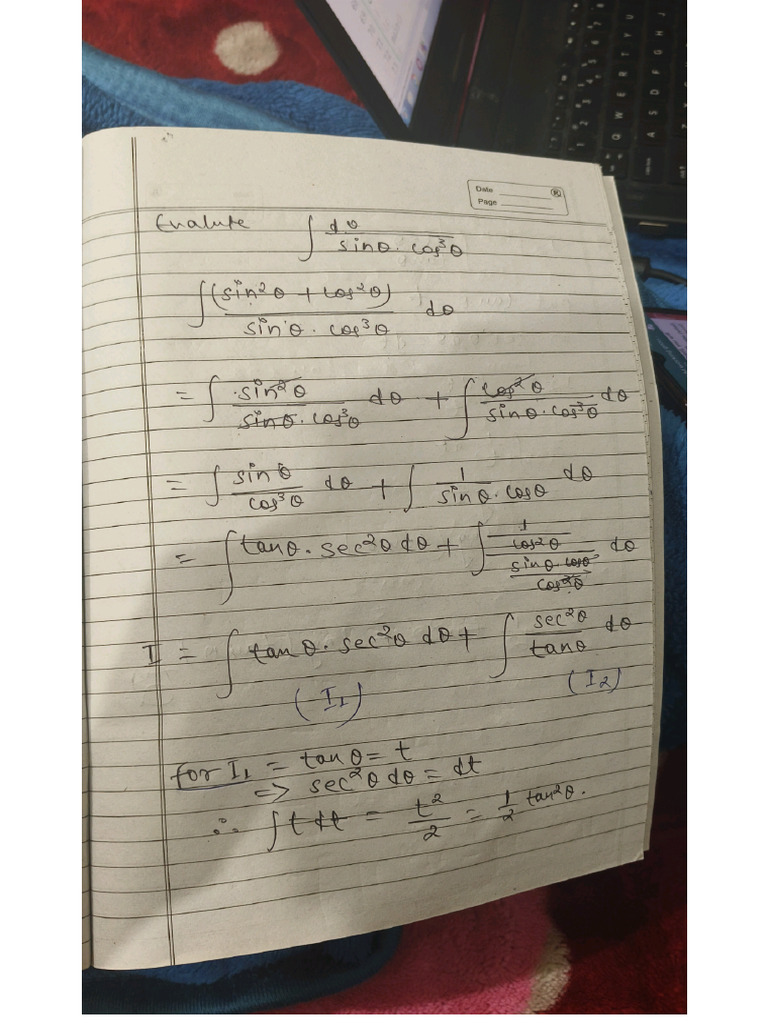 Date
Page
Evalute ∫ dθ / sinθ. cos³θ
∫ (sin²θ + cos²θ) / sinθ. cos³θ dθ
= ∫ sin²θ / sinθ. cos³θ dθ + ∫ cos²θ / sinθ. cos³θ dθ
= ∫ sinθ / cos³θ dθ + ∫ 1 / sinθ. cosθ dθ
= ∫ tanθ. sec²θ dθ + ∫ (1 / cos²θ) / (sinθ cosθ / cos²θ) dθ
I = ∫ tanθ. sec²θ dθ + ∫ sec²θ / tanθ dθ
(I₁) (I₂)
for I₁ = tanθ = t
=> sec²θ dθ = dt
∴ ∫ t dt = t² / 2 = 1/2 tan²θ.
Q W E R T Y U
A S D F G H J